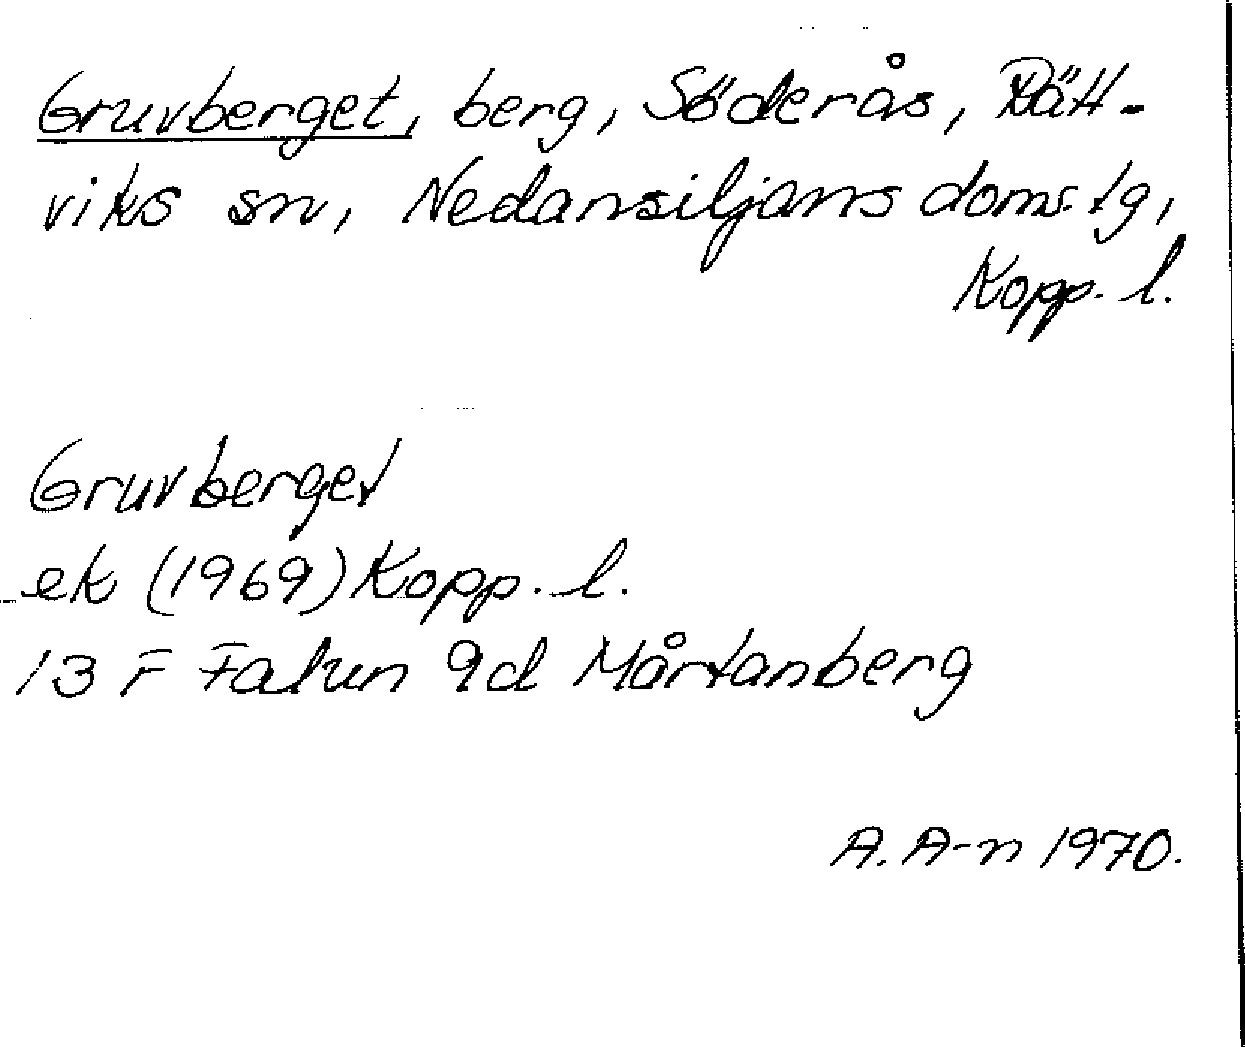 Gruvberget, berg, Söderås, Rätt-
viks sn, Nedansiljans doms.tg,
Kopp. l.
Gruvberget
ek (1969) Kopp. l.
13 F Falun 9d Mårtanberg
A. A-n 1970.